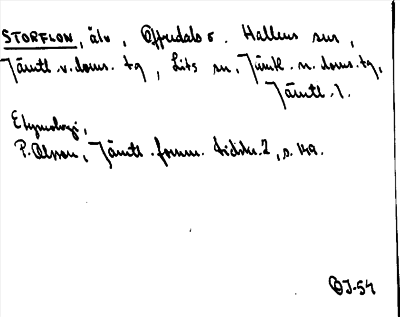 STORFLON, älv, Offerdals o. Hallens snr,
Jämtl. v. doms. tg, Lits sn, Jämtl. n. doms. tg,
Jämtl. l.
Etymologi,
P. Olsson, Jämtl. fornm. tidskr. 2, s. 149.
OJ-54